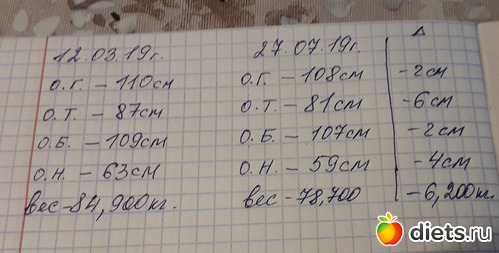 12.03.19г. 27.07.19г. Δ
О.Г. – 110см О.Г. – 108см -2см
О.Т. – 87см О.Т. – 81см -6см
О.Б. – 109см О.Б. – 107см -2см
О.Н. – 63см О.Н. – 59см -4см
вес-84,900кг. вес-78,700 -6,200кг.
diets.ru